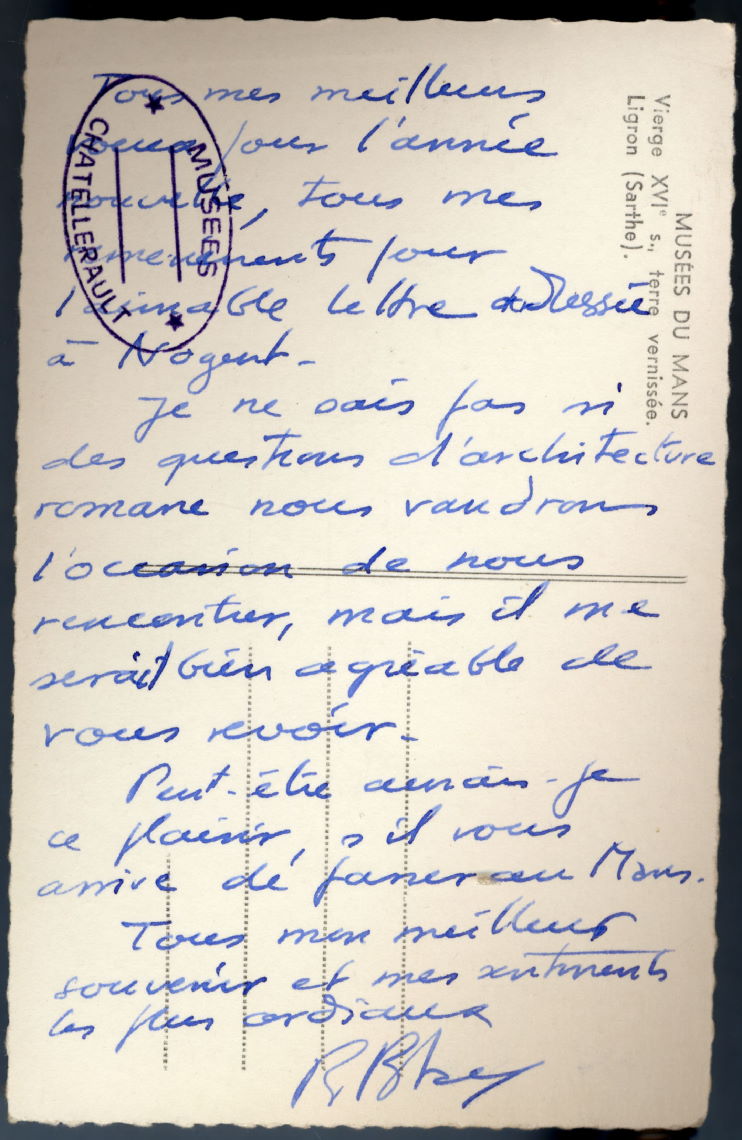 Tous mes meilleurs
voeux pour l'année
nouvelle, tous mes
remerciements pour
l'aimable lettre adressée
à Nogent.
Je ne sais pas si
des questions d'architecture
romane nous vaudrons
l'occasion de nous
rencontrer, mais il me
serait bien agréable de
vous revoir.
Peut-être aurais-je
ce plaisir, s'il vous
arrive de passer au Mans.
Tous mon meilleur
souvenir et mes sentiments
les plus cordiaux
MUSÉES
CHATELLERAULT
MUSÉES DU MANS
Vierge XVIe s., terre vernissée.
Ligron (Sarthe).